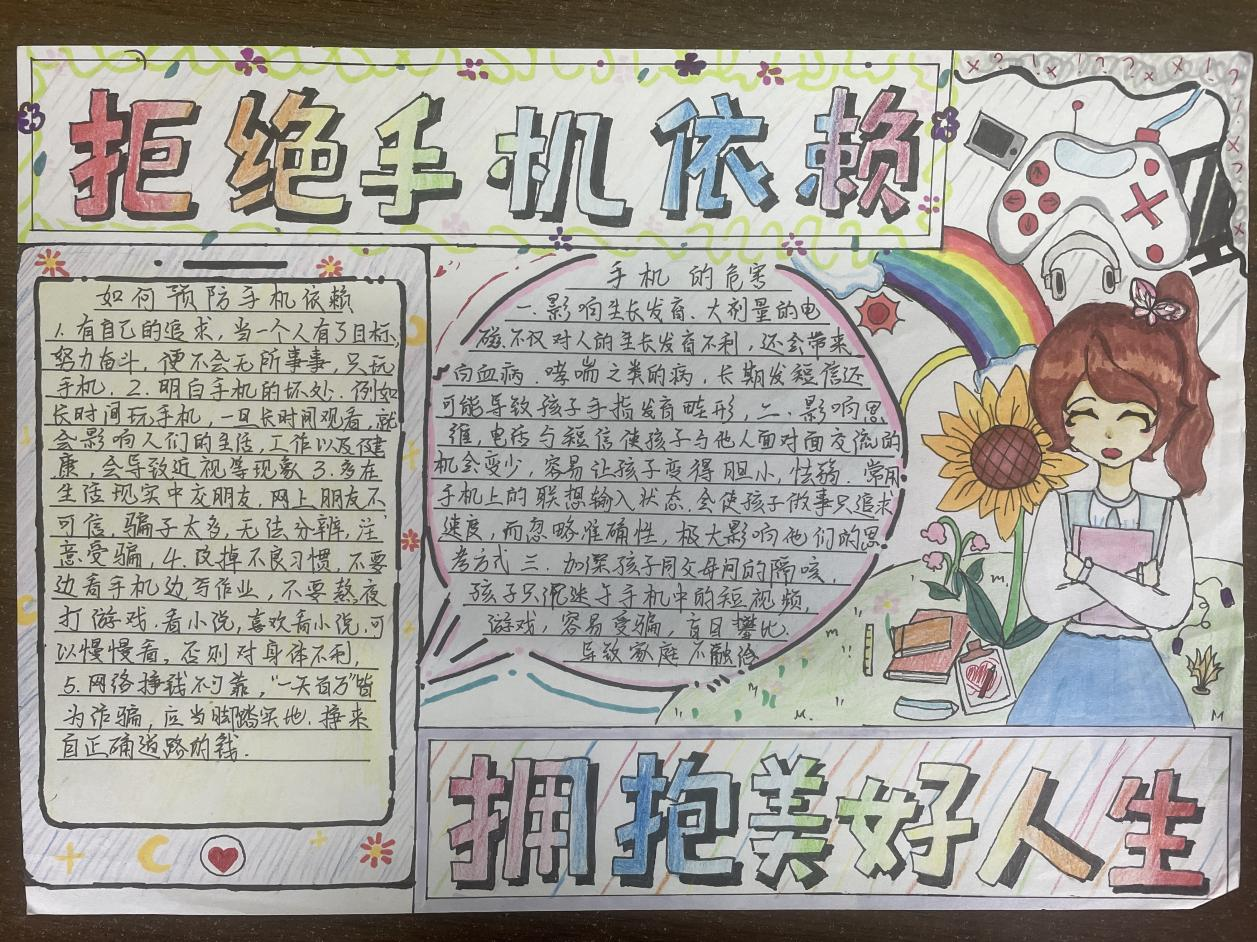 拒绝手机依赖
如何预防手机依赖
1.有自己的追求，当一个人有了目标，
努力奋斗，便不会无所事事，只玩
手机．2．明白手机的坏处．例如
长时间玩手机，一旦长时间观看，就
会影响人们的生活，工作以及健
康，会导致近视等现象3.多在
生活现实中交朋友，网上朋友不
可信，骗子太多，无法分辨，注
意受骗，4．改掉不良习惯，不要
边看手机边写作业，不要熬夜
打游戏，看小说，喜欢看小说，可
以慢慢看，否则对身体不利，
5.网络挣钱不可靠，“一天百万”皆
为诈骗，应当脚踏实地．挣来
自正确道路的钱．
手机的危害
一．影响生长发育．大剂量的电
磁不仅对人的生长发育不利，还会带来
白血病．哮喘之类的病，长期发短信还
可能导致孩子手指发育畸形，二．影响思
维，电话与短信使孩子与他人面对面交流的
机会变少，容易让孩子变得胆小，怯弱．常用
手机上的联想输入状态，会使孩子做事只追求
速度，而忽略准确性，极大影响他们的思
考方式三．加深孩子同父母间的隔
孩子只沉迷于手机中的短视频，
游戏，容易受骗，盲目攀比．
导致家庭不融洽
拥抱美好人生